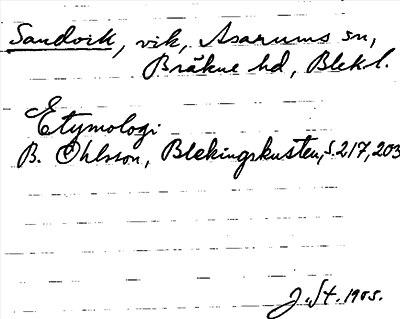 Sandvik, vik, Asarums sn,
Bräkne hd, Blek l.
Etymologi
B. Ohlsson, Blekingskusten, s. 217, 203
J. St. 1985.